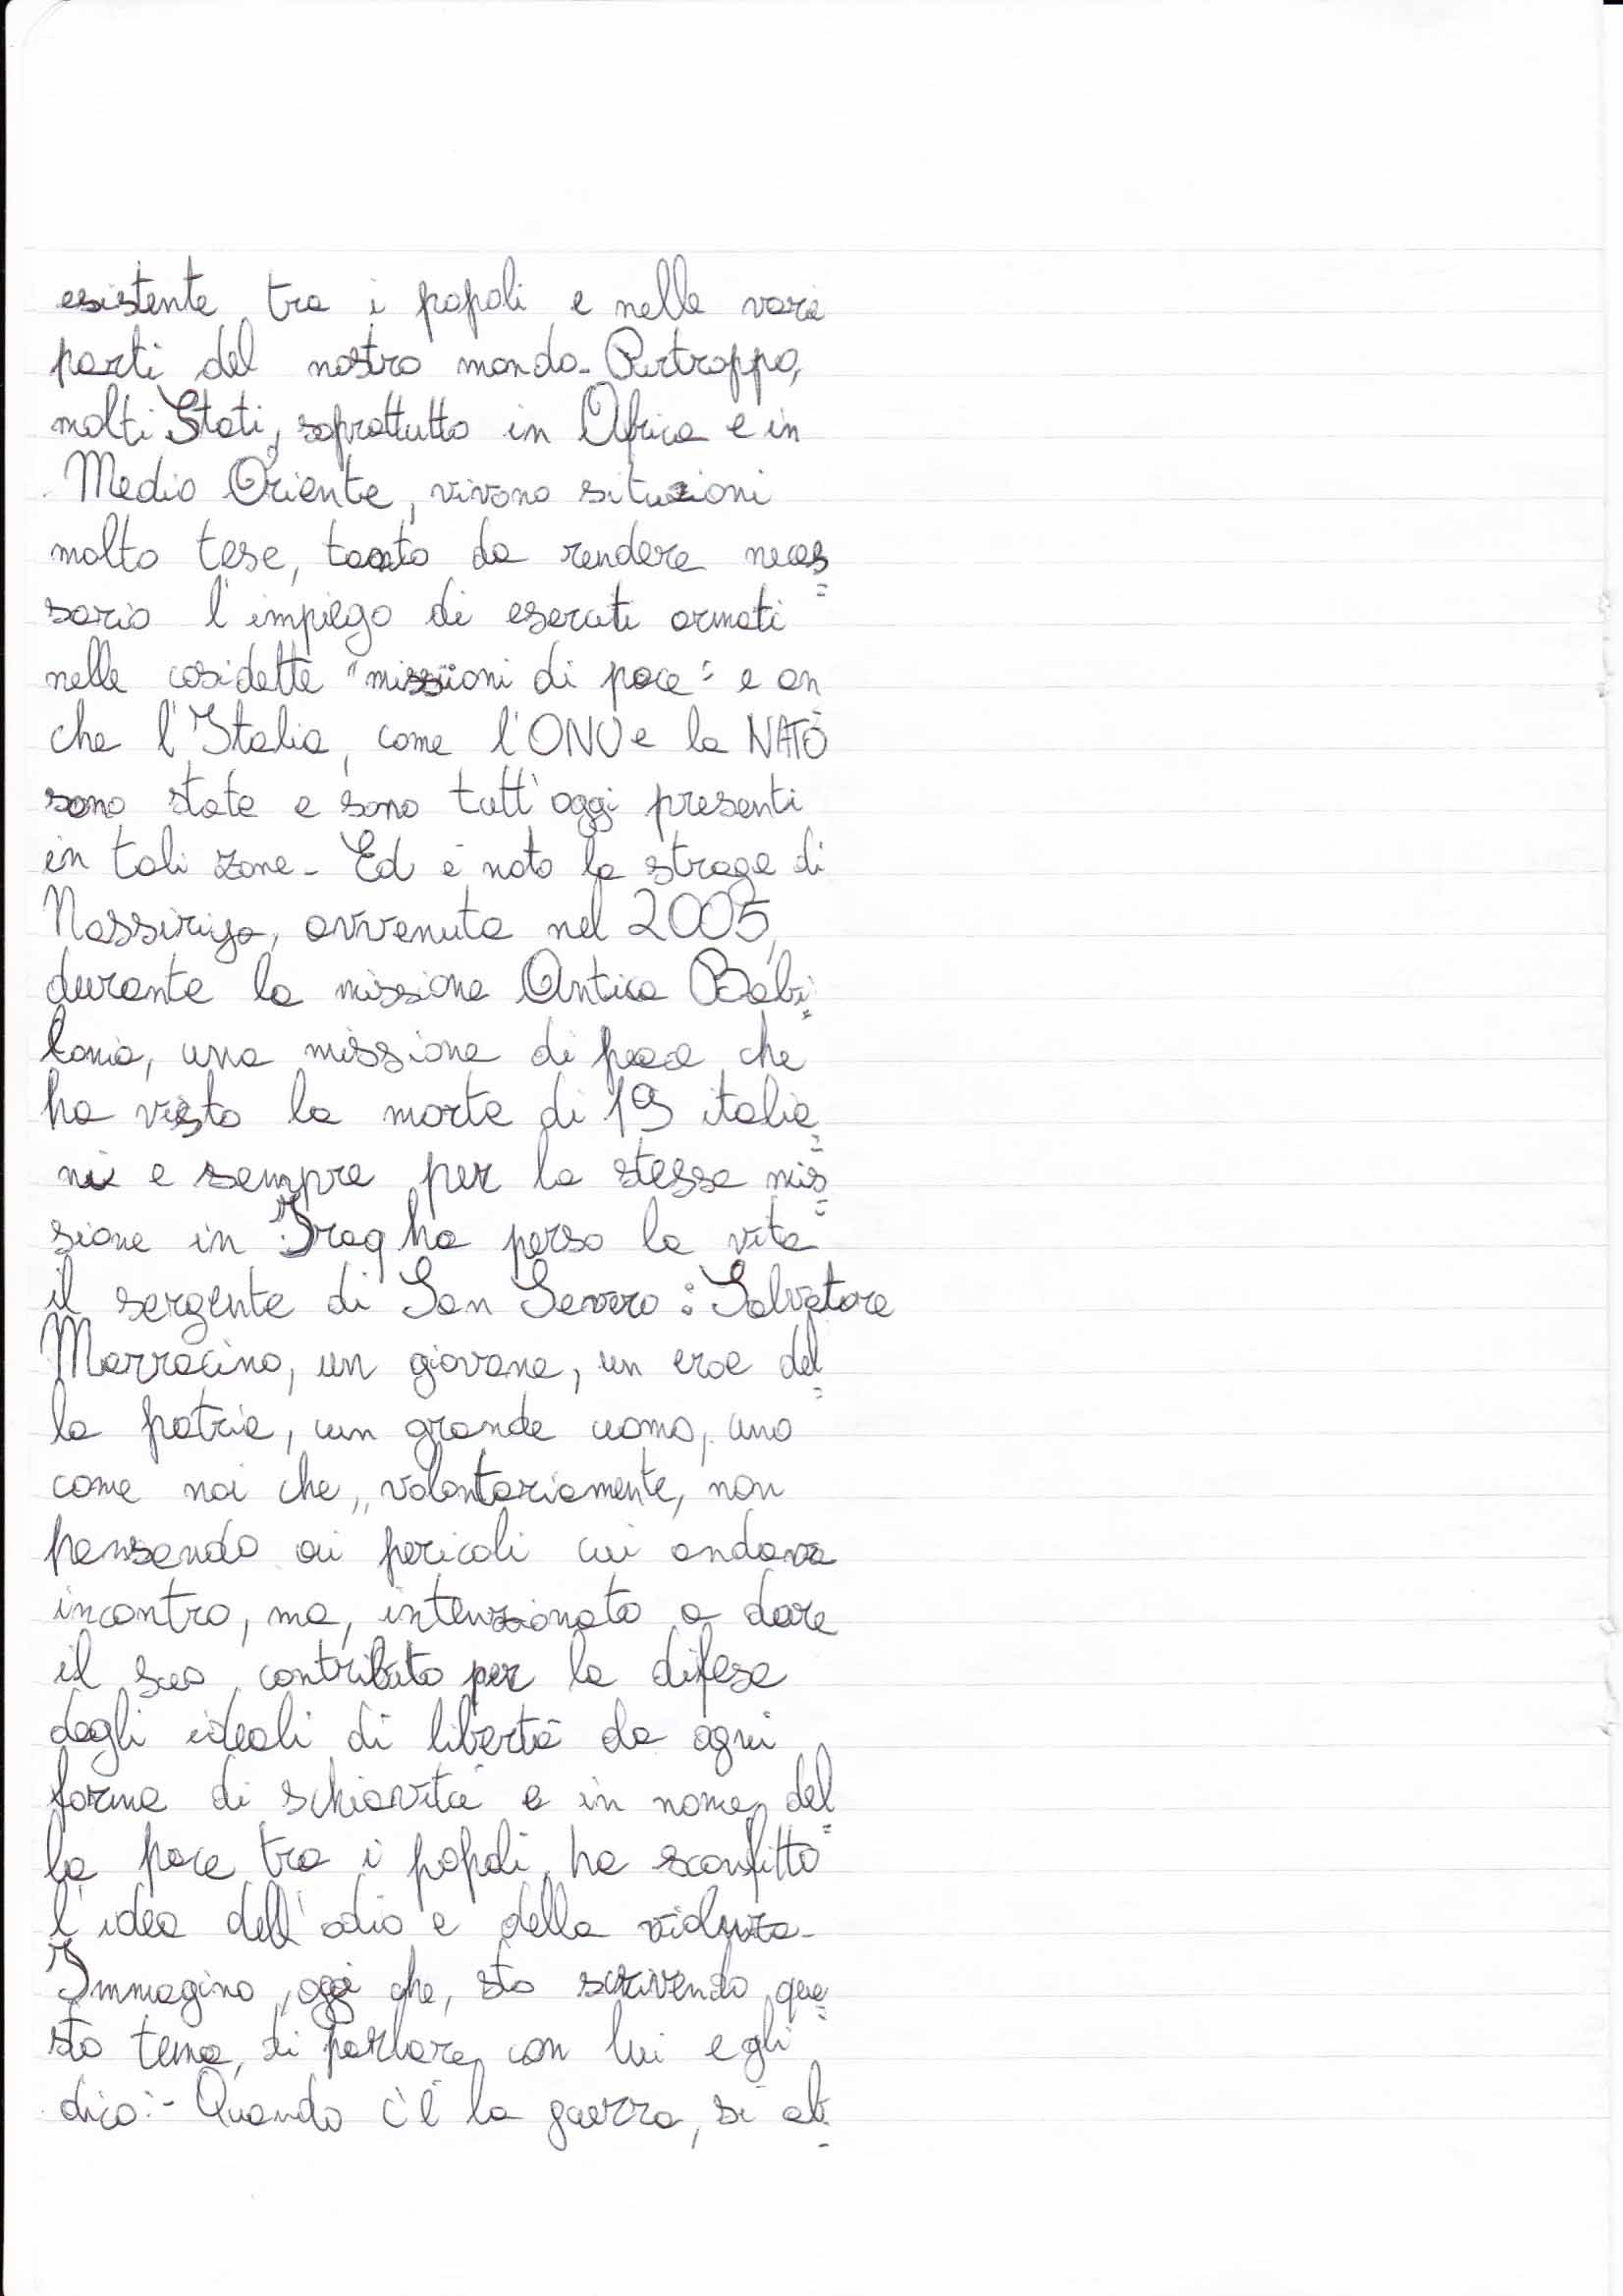 esistente tra i popoli e nelle varie
parti del nostro mondo. Purtroppo,
molti Stati, soprattutto in Africa e in
Medio Oriente, vivono situazioni
molto tese, tanto da rendere neces=
sario l'impiego di eserciti armati
nelle cosidette "missioni di pace" e an=
che l'Italia, come l'ONU e la NATO
sono state e sono tutt'oggi presenti
in tali zone. Ed è nota la strage di
Nassiriya, avvenuta nel 2005,
durante la missione Antica Babi=
lonia, una missione di pace che
ha visto la morte di 19 italia=
ni e sempre per la stessa mis=
sione in Iraq ha perso la vita
il sergente di San Severo: Salvatore
Marracino, un giovane, un eroe del=
la patria, un grande uomo, uno
come noi che, volontariamente, non
pensando ai pericoli cui andava
incontro, ma, intenzionato a dare
il suo contributo per la difesa
degli ideali di libertà da ogni
forma di schiavitù e in nome del=
la pace tra i popoli, ha sconfitto
l'idea dell'odio e della violenza.
Immagino, oggi che, sto scrivendo que=
sto tema, di parlare con lui e gli
dico:- Quando c'è la guerra, si ab=